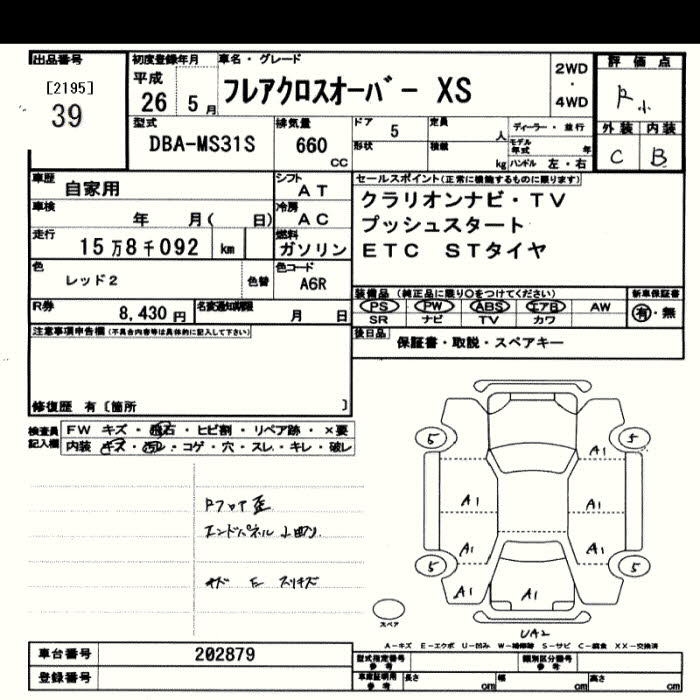 出品番号
[2195]
39
初度登録年月
平成
26 5 月
車名・グレード
フレアクロスオーバー XS
2WD
・
4WD
評価点
R小
外装 内装
C B
型式
DBA-MS31S
排気量
660
CC
ドア
5
定員
人
形状
積載
kg
ディーラー・並行
モデル年式 年
ハンドル 左・右
車歴
自家用
シフト
AT
車検
年 月( 日)
冷房
AC
走行
15万8千092 km
燃料
ガソリン
色
レッド2
色替
色コード
A6R
R券
8,430 円
名変通知期限
月 日
セールスポイント(正常に機能するものに限ります)
クラリオンナビ・TV
プッシュスタート
ETC STタイヤ
装備品 (純正品に限り○をつけてください)
PS PW ABS エアB AW
SR ナビ TV カワ
新車保証書
有・無
後日品
保証書・取説・スペアキー
注意事項申告欄(不具合内容等は具体的に記入して下さい)
修復歴 有〔箇所 〕
検査員記入欄
FW キズ・飛石・ヒビ割・リペア跡・×要
内装 キズ・汚レ・コゲ・穴・スレ・キレ・破レ
Rフロア歪
エンドパネル
スリキズ
5 5
A1
A1 A1
A1 A1
5 5
A1 A1
UA2
スペア
A-キズ E-エクボ U-凹み W-補修跡 S-サビ C-腐食 XX-交換済
車台番号
202879
登録番号
型式指定番号
参考
類別区分番号
参考
車庫証明用
参考
長さ cm
幅 cm
高さ cm